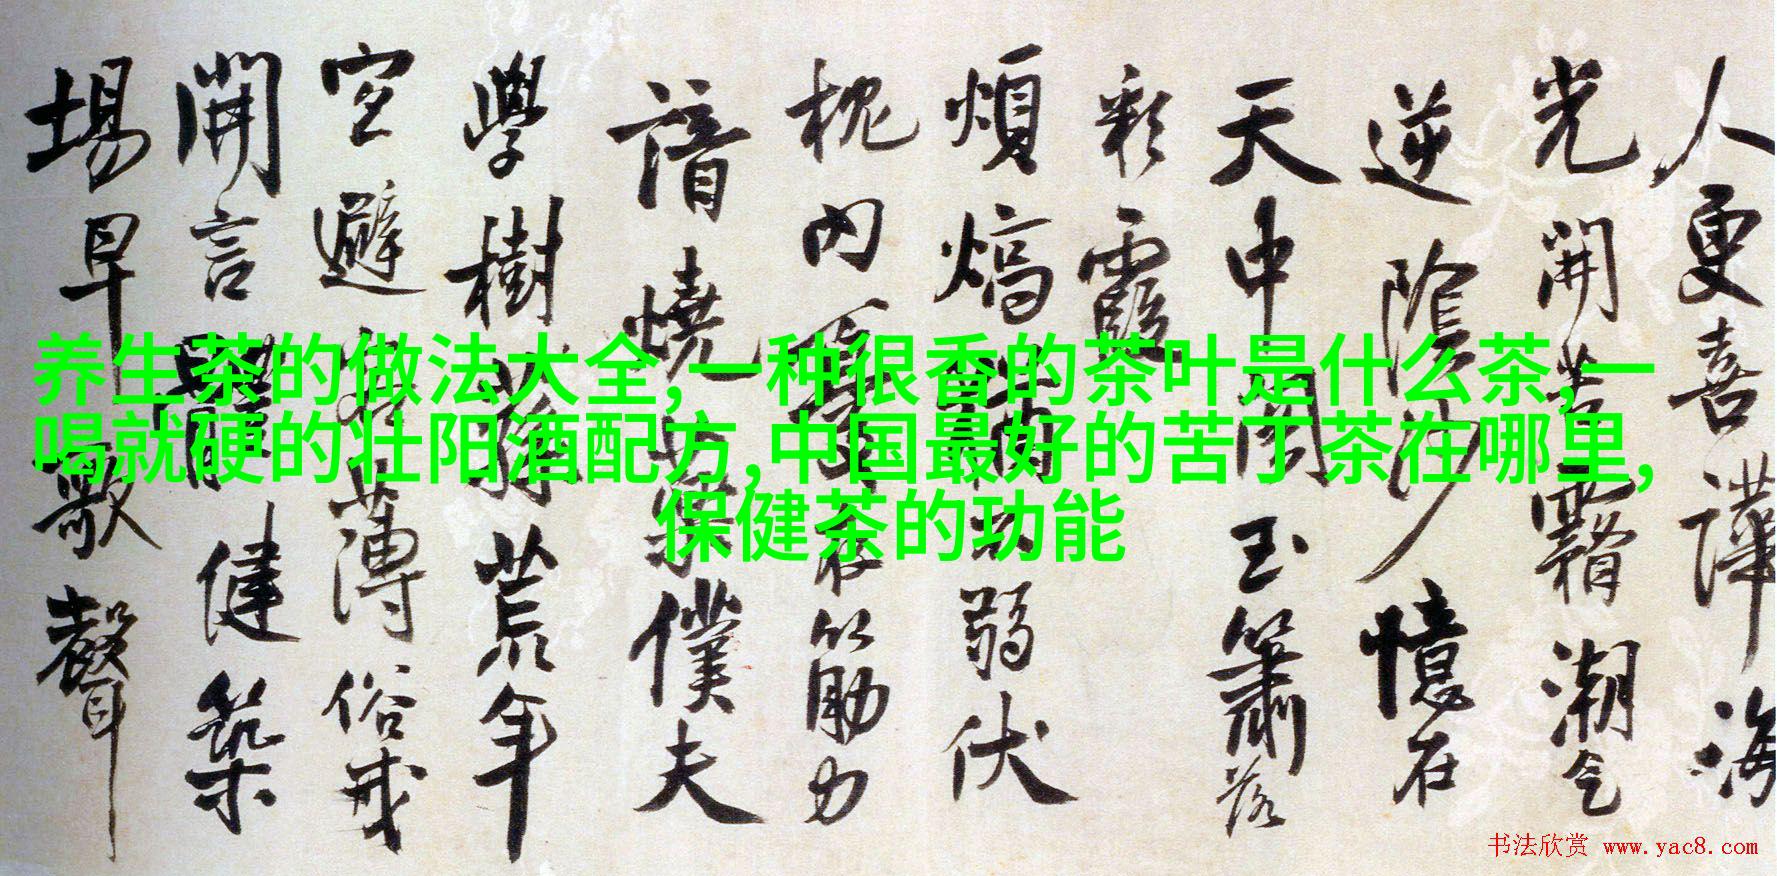 养生茶的做法大全,一种很香的茶叶是什么茶,一
喝就硬的壮阳酒配方,中国最好的苦丁茶在哪里,
保健茶的功能
人更喜譁海
光開潮气
逆陰沙憶在
天中閣玉簫落
彩霞
煩熇弱伏
枕内筋力
諳燒僕夫
學樹荒年
空避薄俗戒
開言健築
場早歌聲
书法欣赏 www.yac8.com